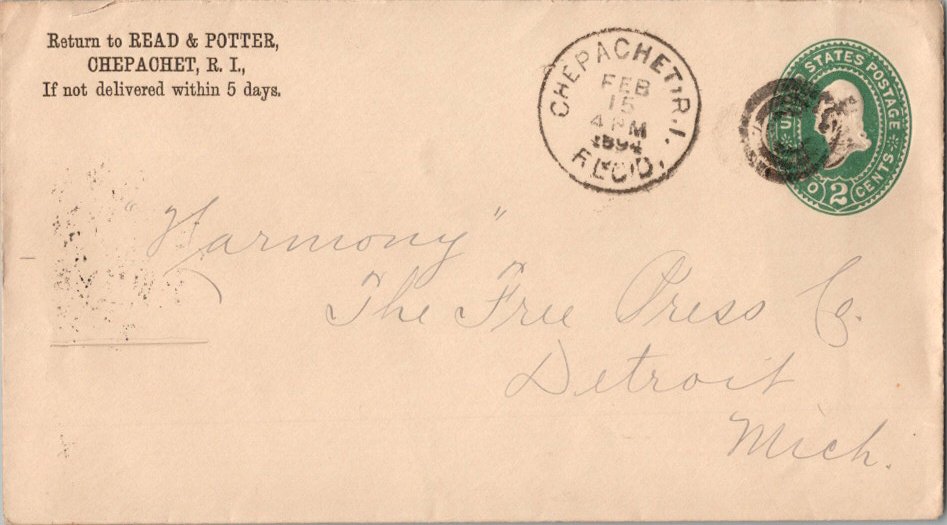 Return to READ & POTTER,
CHEPACHET, R. I.,
If not delivered within 5 days.
CHEPACHET, R.I.
FEB
15
4 PM
1894
REC'D.
STATES POSTAGE
2
CENTS
"Harmony"
The Free Press Co.
Detroit
Mich.